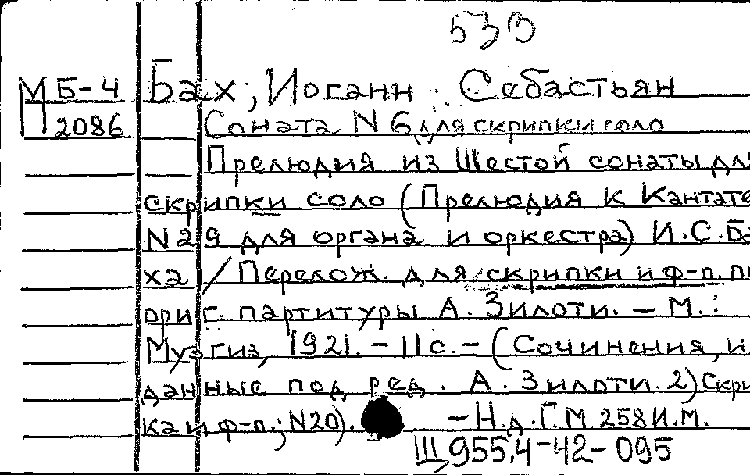 533
МБ-4 Бах, Иоганн Себастьян
П 2086 Соната N 6 для скрипки соло
Прелюдия из Шестой сонаты для
скрипки соло (Прелюдия к Кантате
N 29 для органа и оркестра) И.С.Ба
ха / Перелож. для скрипки и ф-п. по
ориг. партитуры А. Зилоти. – М.:
Музгиз, 1921. – 11с. – (Сочинения, из
данные под ред. А. Зилоти. 2) Скрип
ка и ф-п.; N20). – Н.д. Г.М 258 И.М.
Щ955.4-42-095